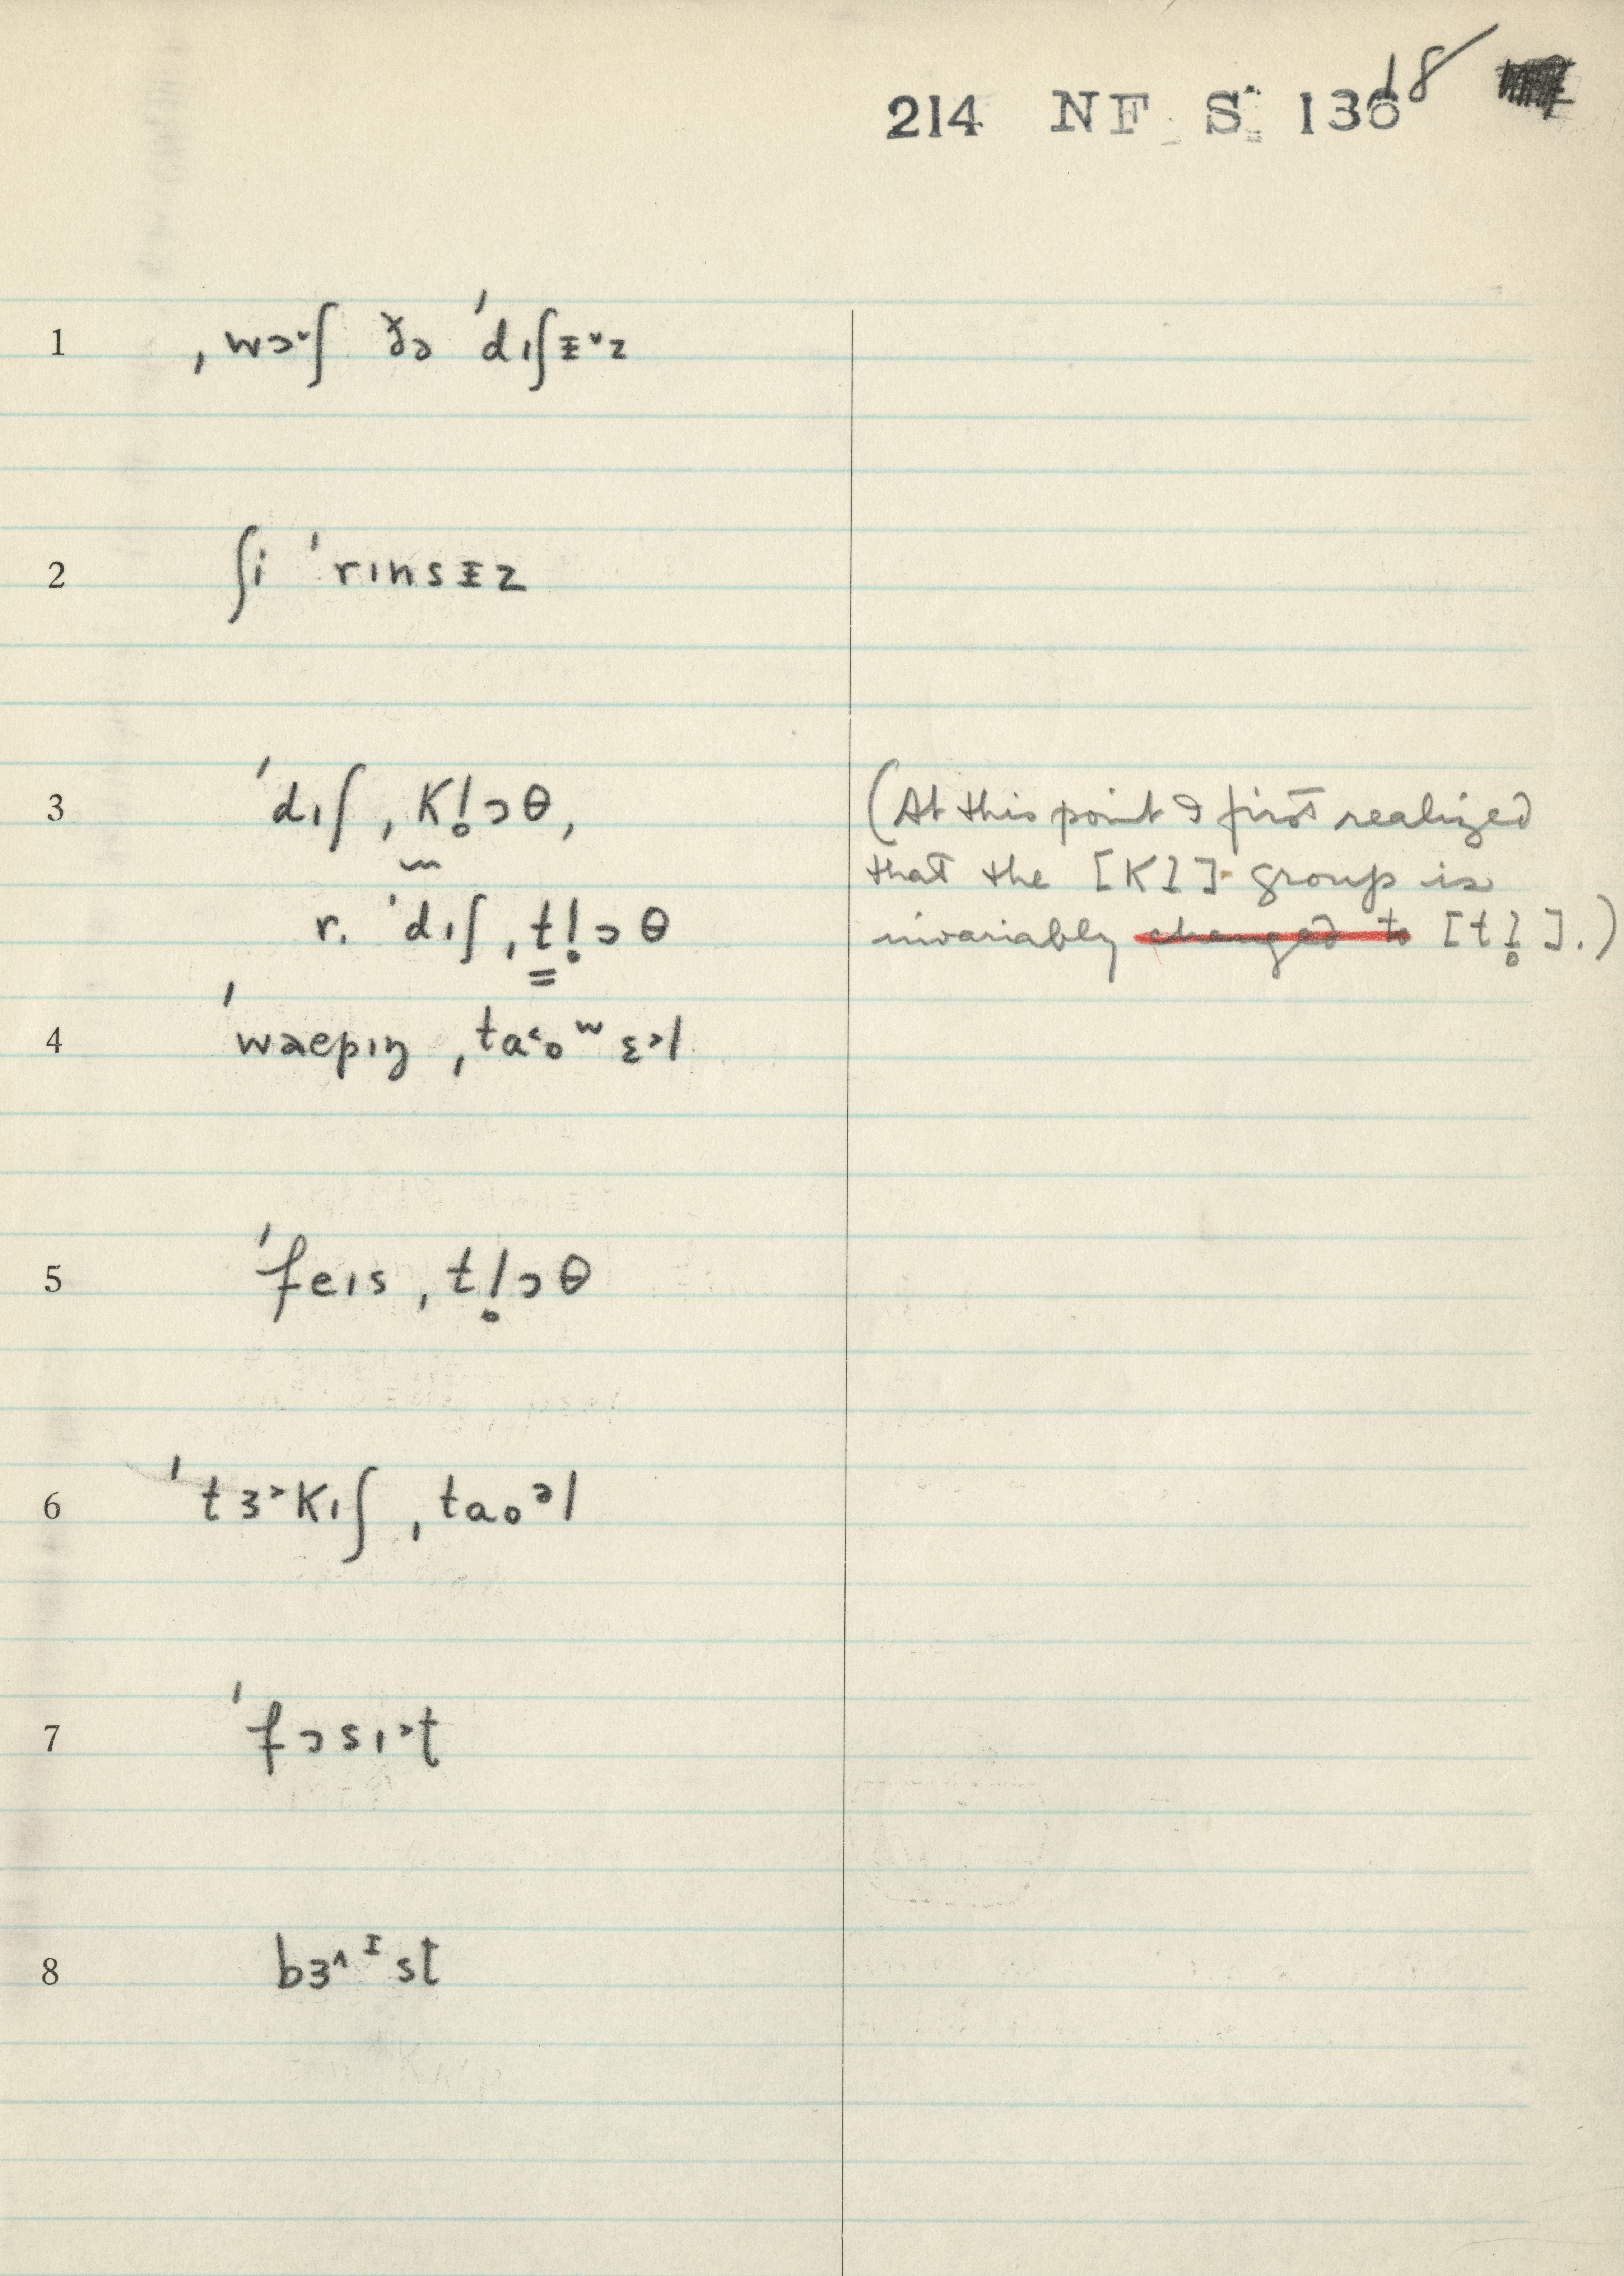 214 NF S 136 18
1 ˌwɔ˅ʃ ðə ˈdɪʃɪ˅z
2 ʃi ˈrɪnsɪz
3 ˈdɪʃ ˌKl̥ɔθ,
(At this point I first realized
that the [Kl] group is
r. ˈdɪʃ ˌtl̥ɔθ
invariably changed to [tl̥].)
4 ˈwæpɪŋ ˌta˂oʷɛ˃l
5 ˈfeɪs ˌtl̥ɔθ
6 ˈtɜ˃Kɪʃ ˌtaoᵊl
7 ˈfɔsɪ˃t
8 bɜ˄ᴵst